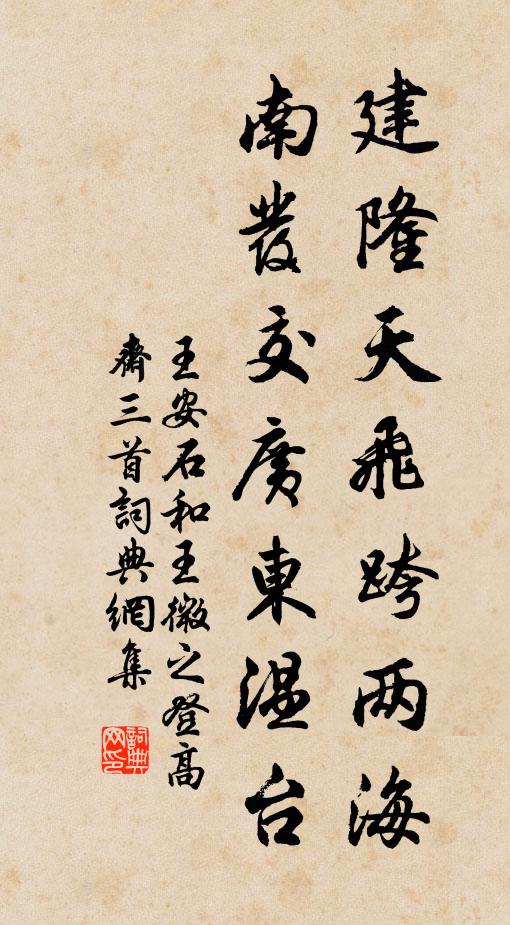 建隆天飛跨两海
南發交廣東温台
王安石和王微之登高
齋三首詞典網集
詞典網印